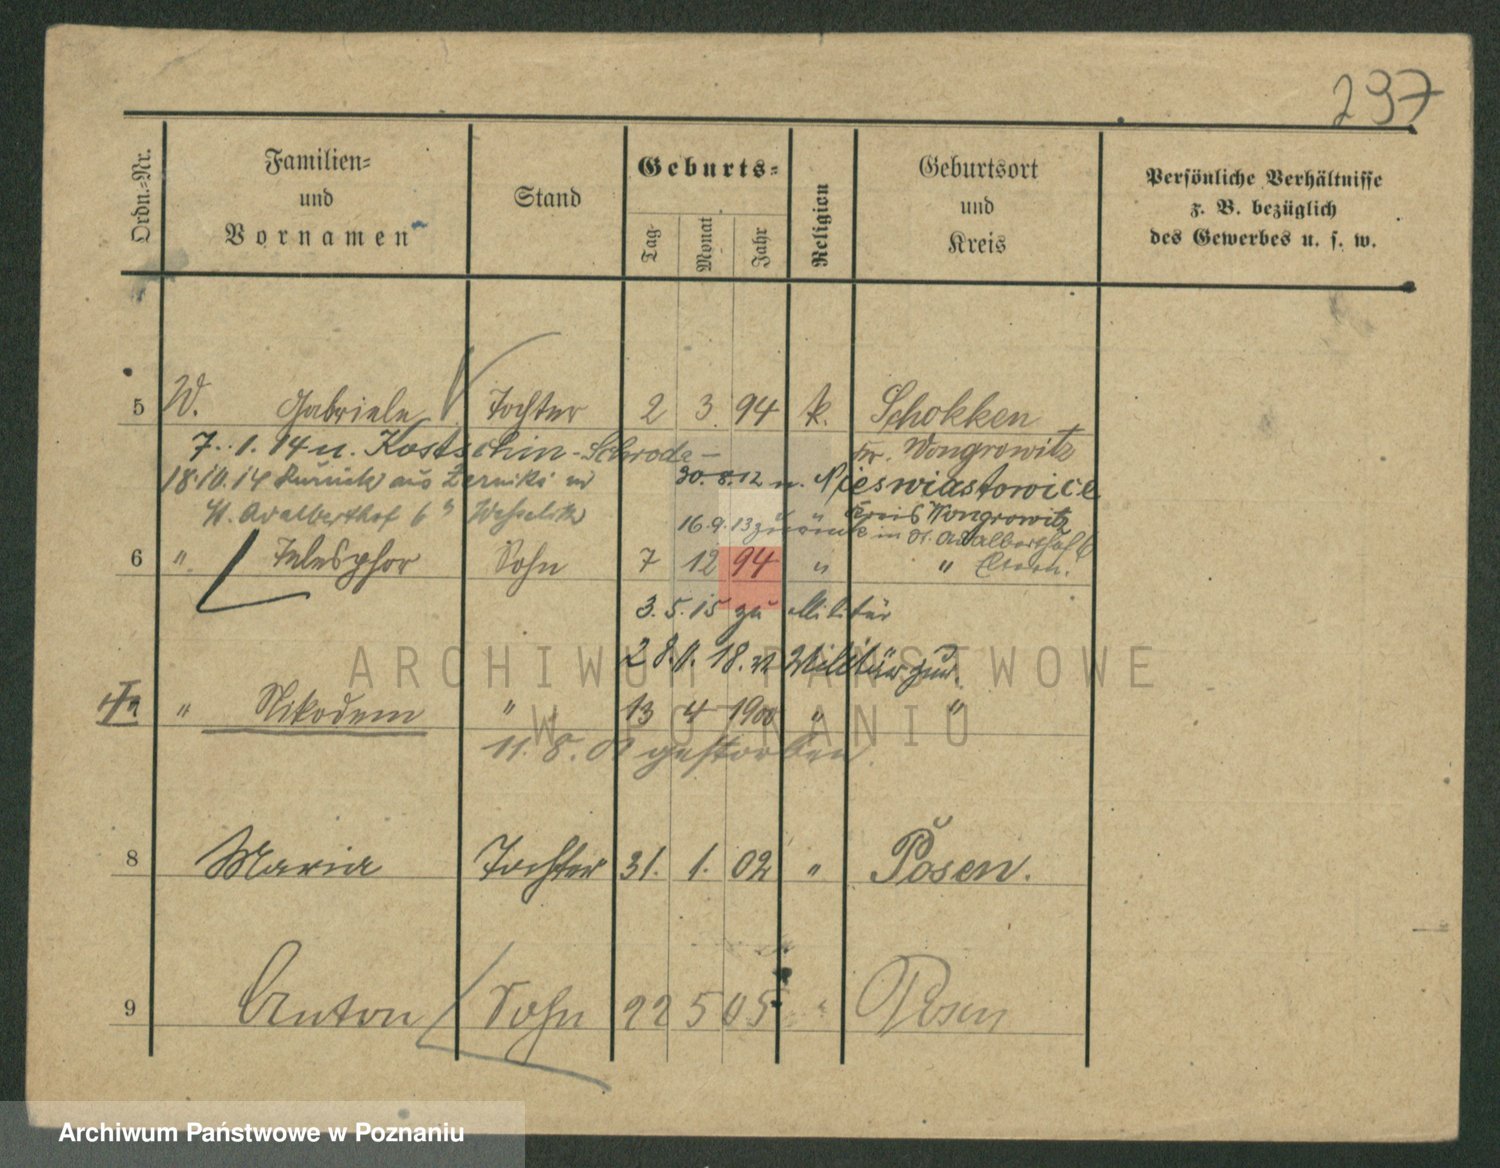 297
Ordn.-Nr.
Familien-
und
Vornamen
Stand
Geburts-
Tag
Monat
Jahr
Religion
Geburtsort
und
Kreis
Persönliche Verhältnisse
z. B. bezüglich
des Gewerbes u. s. w.
5 W. Gabriele Tochter 2 3. 94 k. Schokken
7. 1. 14 n. Kostschin - Schroda -
Kr. Wongrowitz
18.10.14 Zurück aus Zerniki in
30. 8. 12 n. Nieswiastowice
St. Adalberthof 6
Kreis Wongrowitz
16. 9. 13 zurück in St. Adalberthof 6
6 " Telesphor Sohn 7 12 94 " " Eltern.
3. 5. 15 zu Militär
18. v. Militär zur.
" Nikodem " 13 4 1900 " "
11. 8. 01 gestorben.
8 Maria Tochter 31. 1. 02 " Posen.
9 Anton Sohn 22 5 05 " Posen
ARCHIWUM PAŃSTWOWE
W POZNANIU
Archiwum Państwowe w Poznaniu